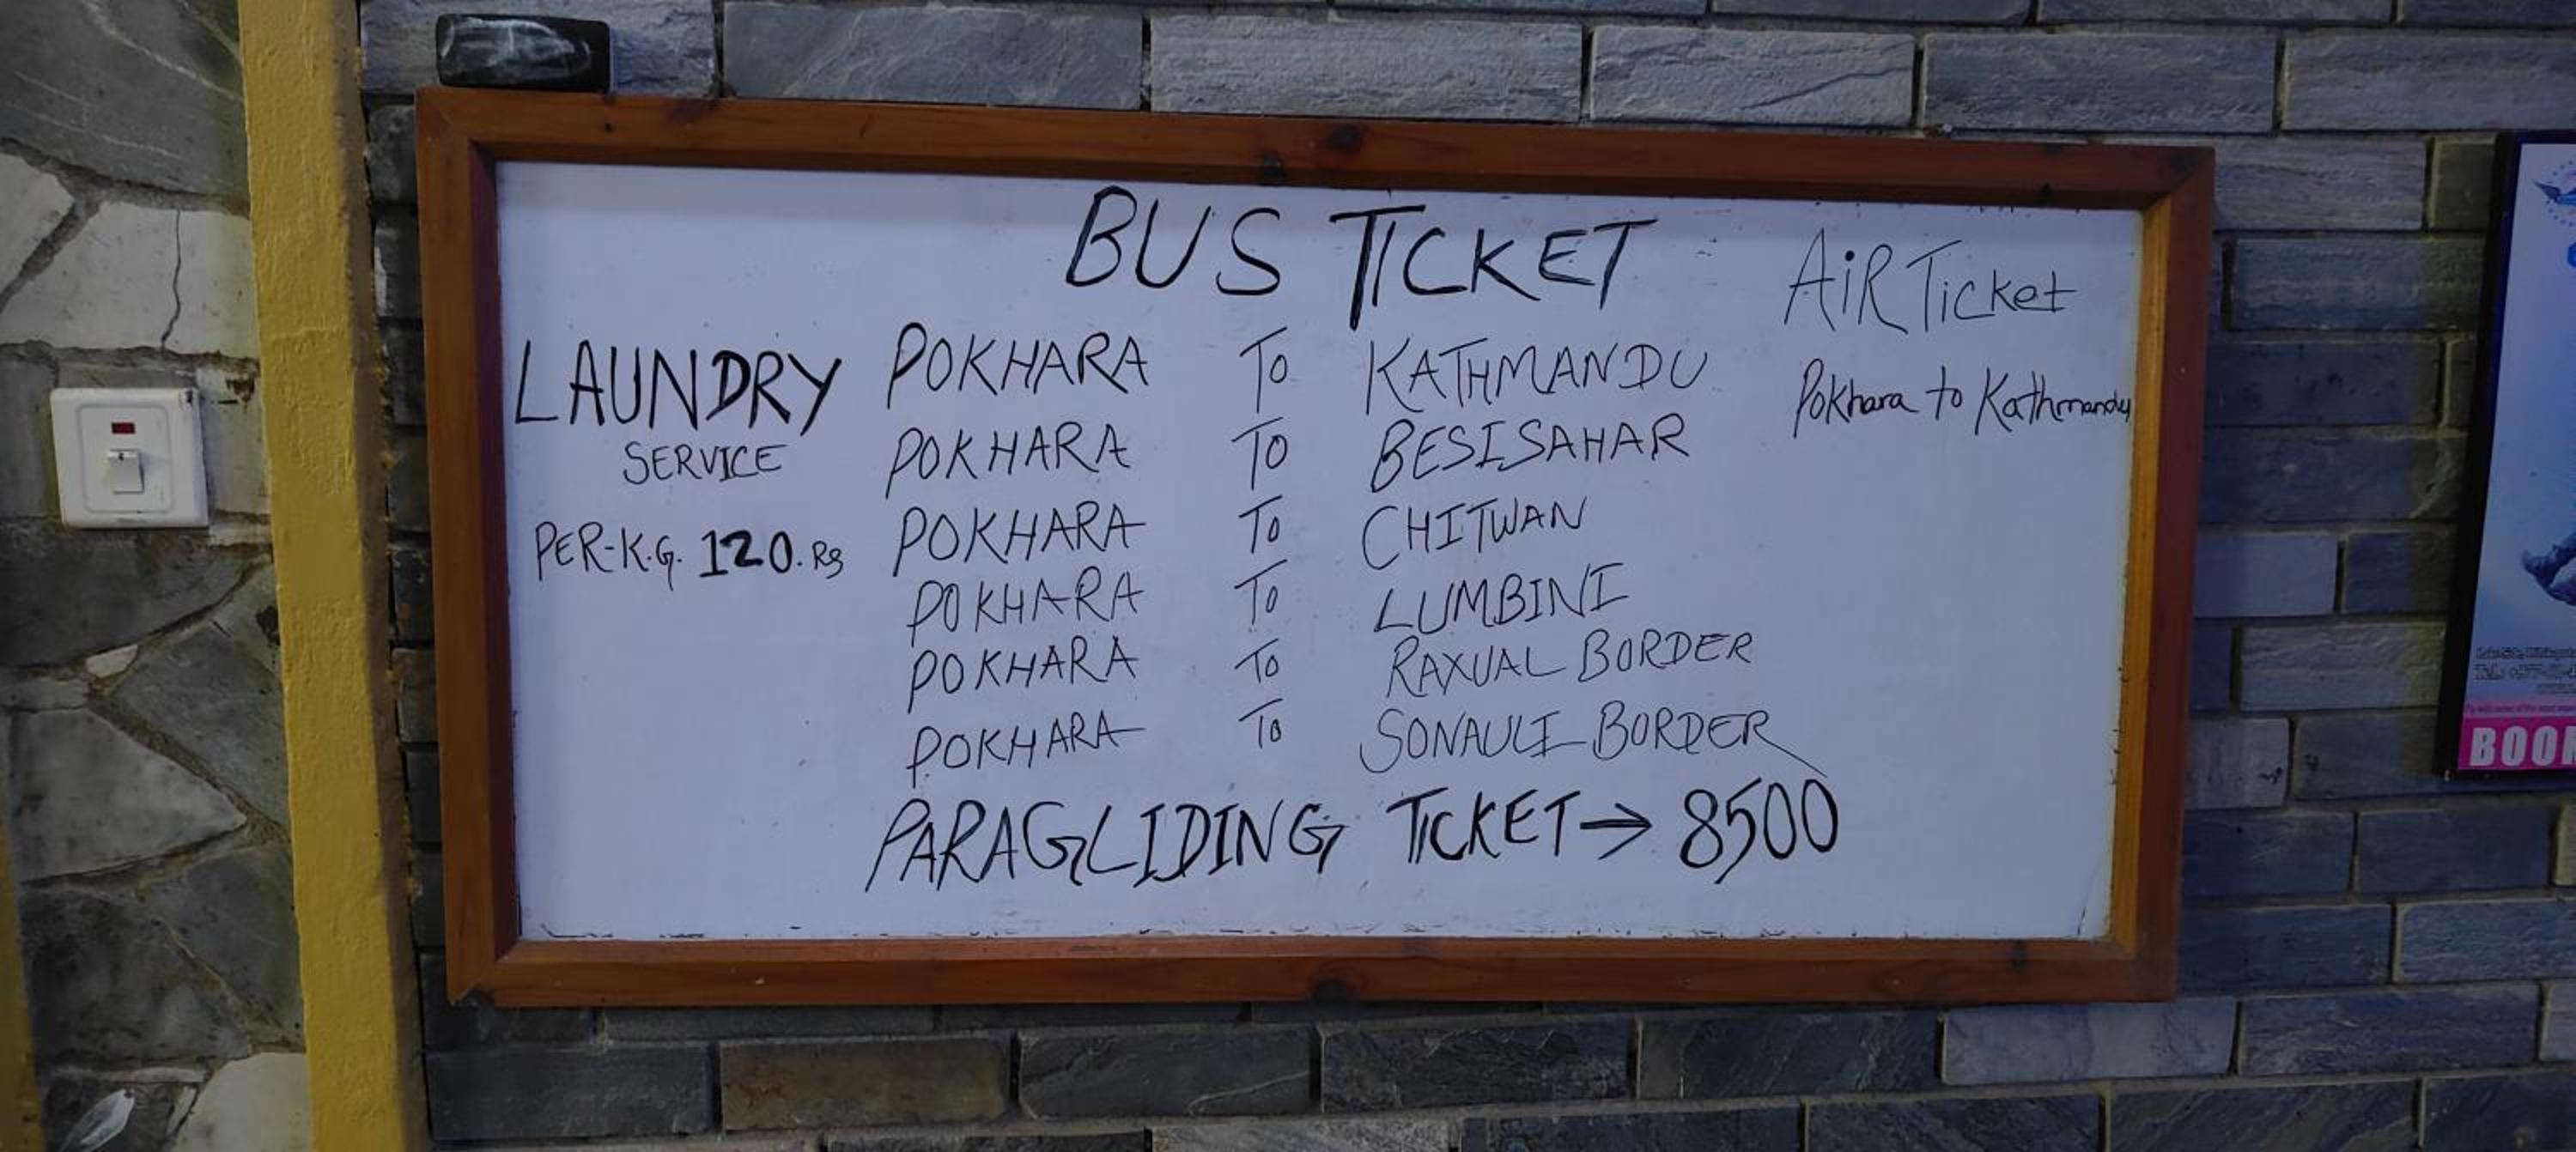 BUS TICKET
AiR Ticket
LAUNDRY
SERVICE
PER-K.G. 120. Rs
POKHARA To KATHMANDU
POKHARA To BESISAHAR
POKHARA To CHITWAN
POKHARA To LUMBINI
POKHARA To RAXUAL BORDER
POKHARA To SONAULI BORDER
PARAGLIDING TICKET → 8500
Pokhara to Kathmandu
BOO